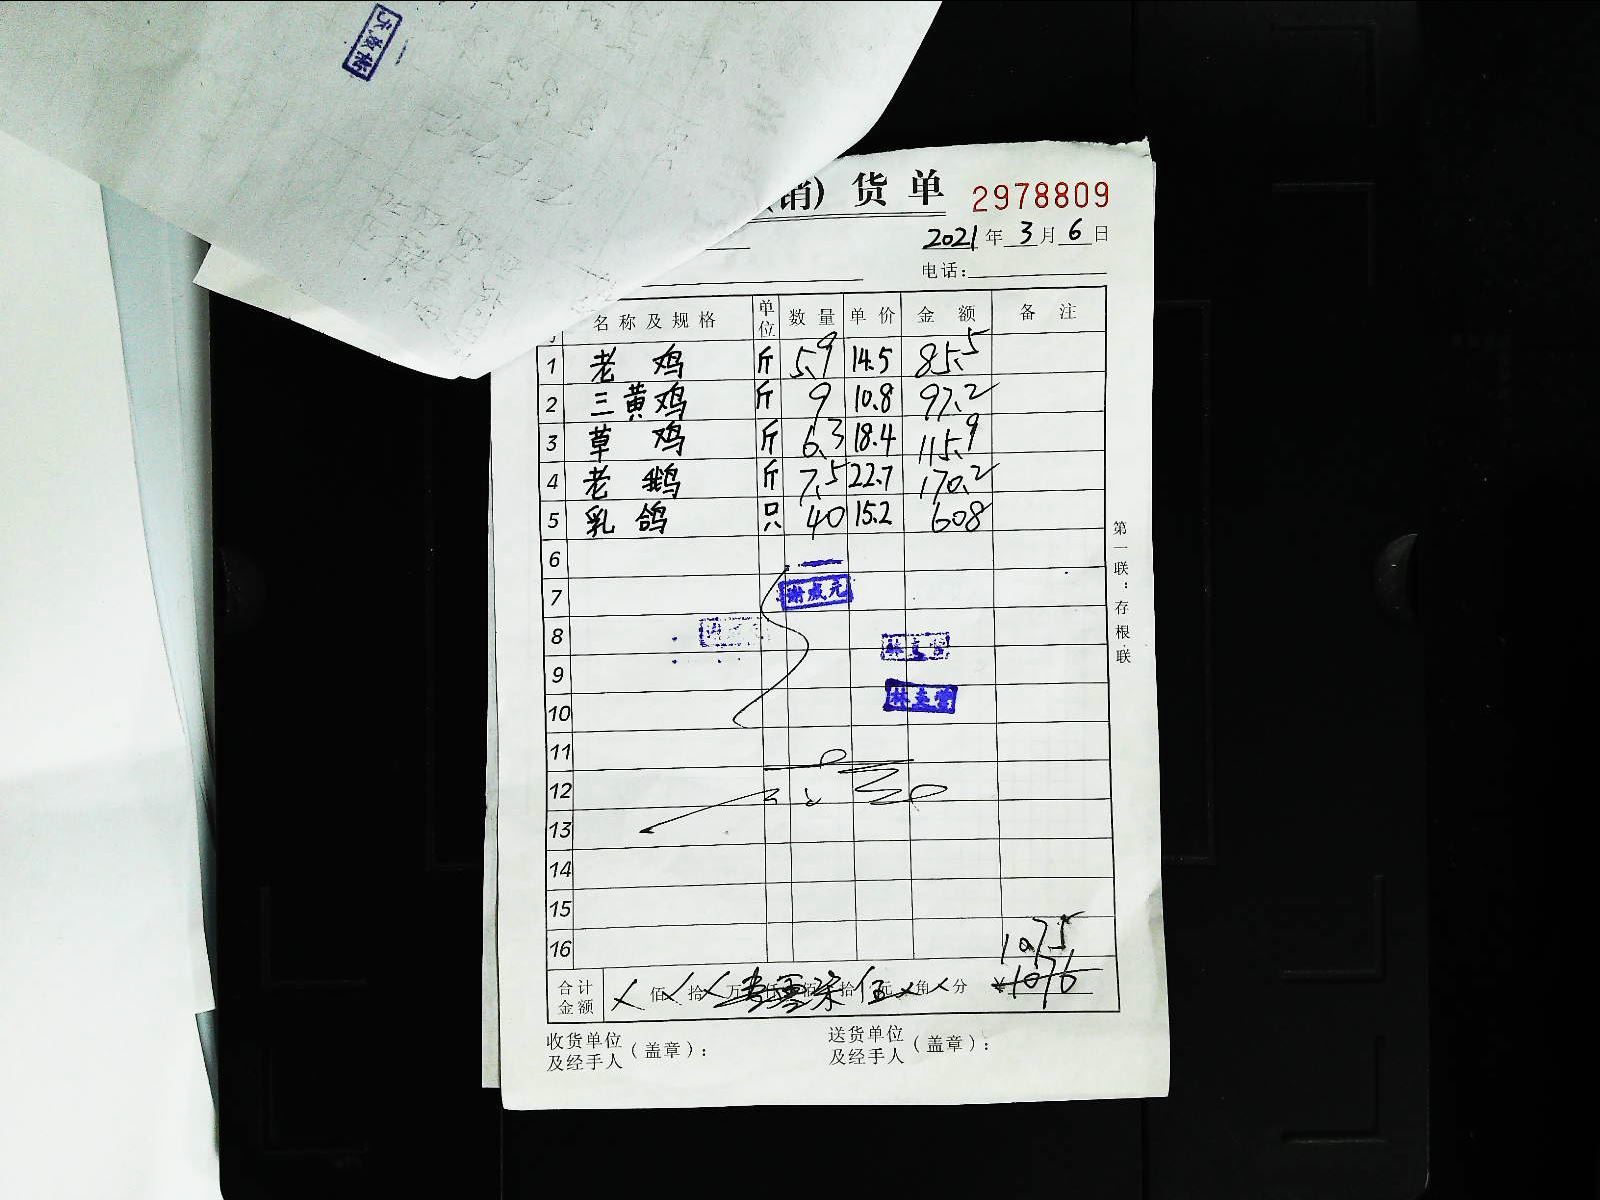 销) 货 单 2978809
2021年3月6日
电话:
名称及规格 单位 数量 单价 金额 备注
1 老鸡 斤 5.9 14.5 85.5
2 三黄鸡 斤 9 10.8 97.2
3 草鸡 斤 6.3 18.4 115.9
4 老鹅 斤 7.5 22.7 170.2
5 乳鸽 只 40 15.2 608
6
7
8
9
10
11
12
13
14
15
16 1075
合计金额 佰 拾 万 壹仟零佰柒拾伍元 角 分 ¥1076
收货单位及经手人(盖章): 送货单位及经手人(盖章):
第一联:存根联